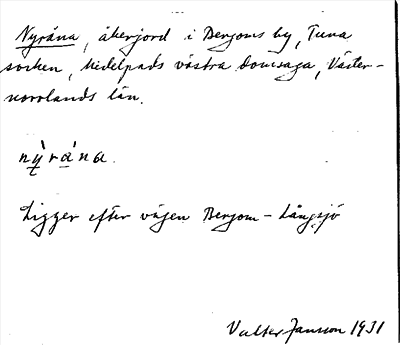 Nyråna, åkerjord i Bergoms by, Tuna
socken, Medelpads västra domsaga, Väster-
norrlands län.
nỳràna.
Ligger efter vägen Bergom - Långsjö
Valter Jansson 1931